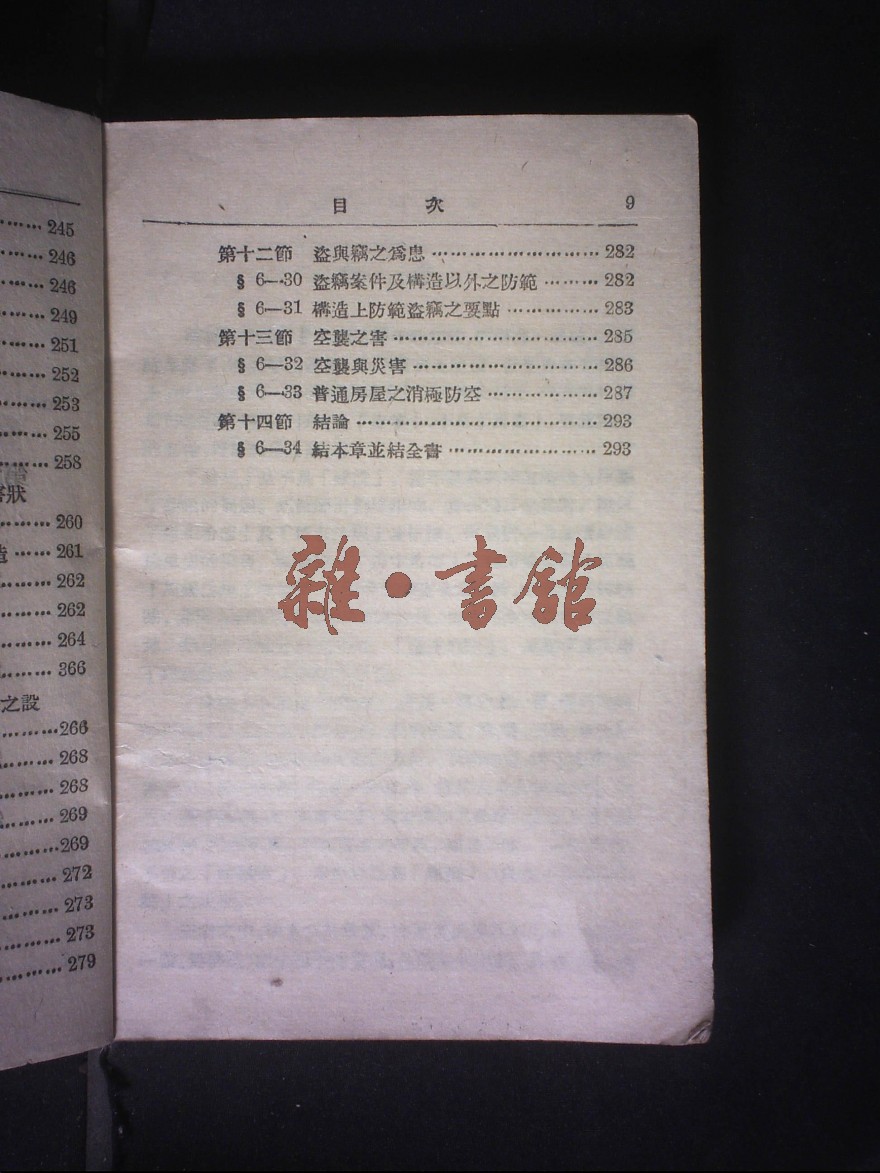 245
246
246
249
251
252
253
255
258
害狀
260
造 …… 261
262
262
264
366
之設
266
268
268
269
269
272
273
273
279
目 次 9
第十二節 盜與竊之爲患 …………………… 282
§ 6—30 盜竊案件及構造以外之防範 ……… 282
§ 6—31 構造上防範盜竊之要點 …………… 283
第十三節 空襲之害 ………………………… 285
§ 6—32 空襲與災害 ……………………… 286
§ 6—33 普通房屋之消極防空 …………… 287
第十四節 結論 ……………………………… 293
§ 6—34 結本章並結全書 ………………… 293
雜·書館